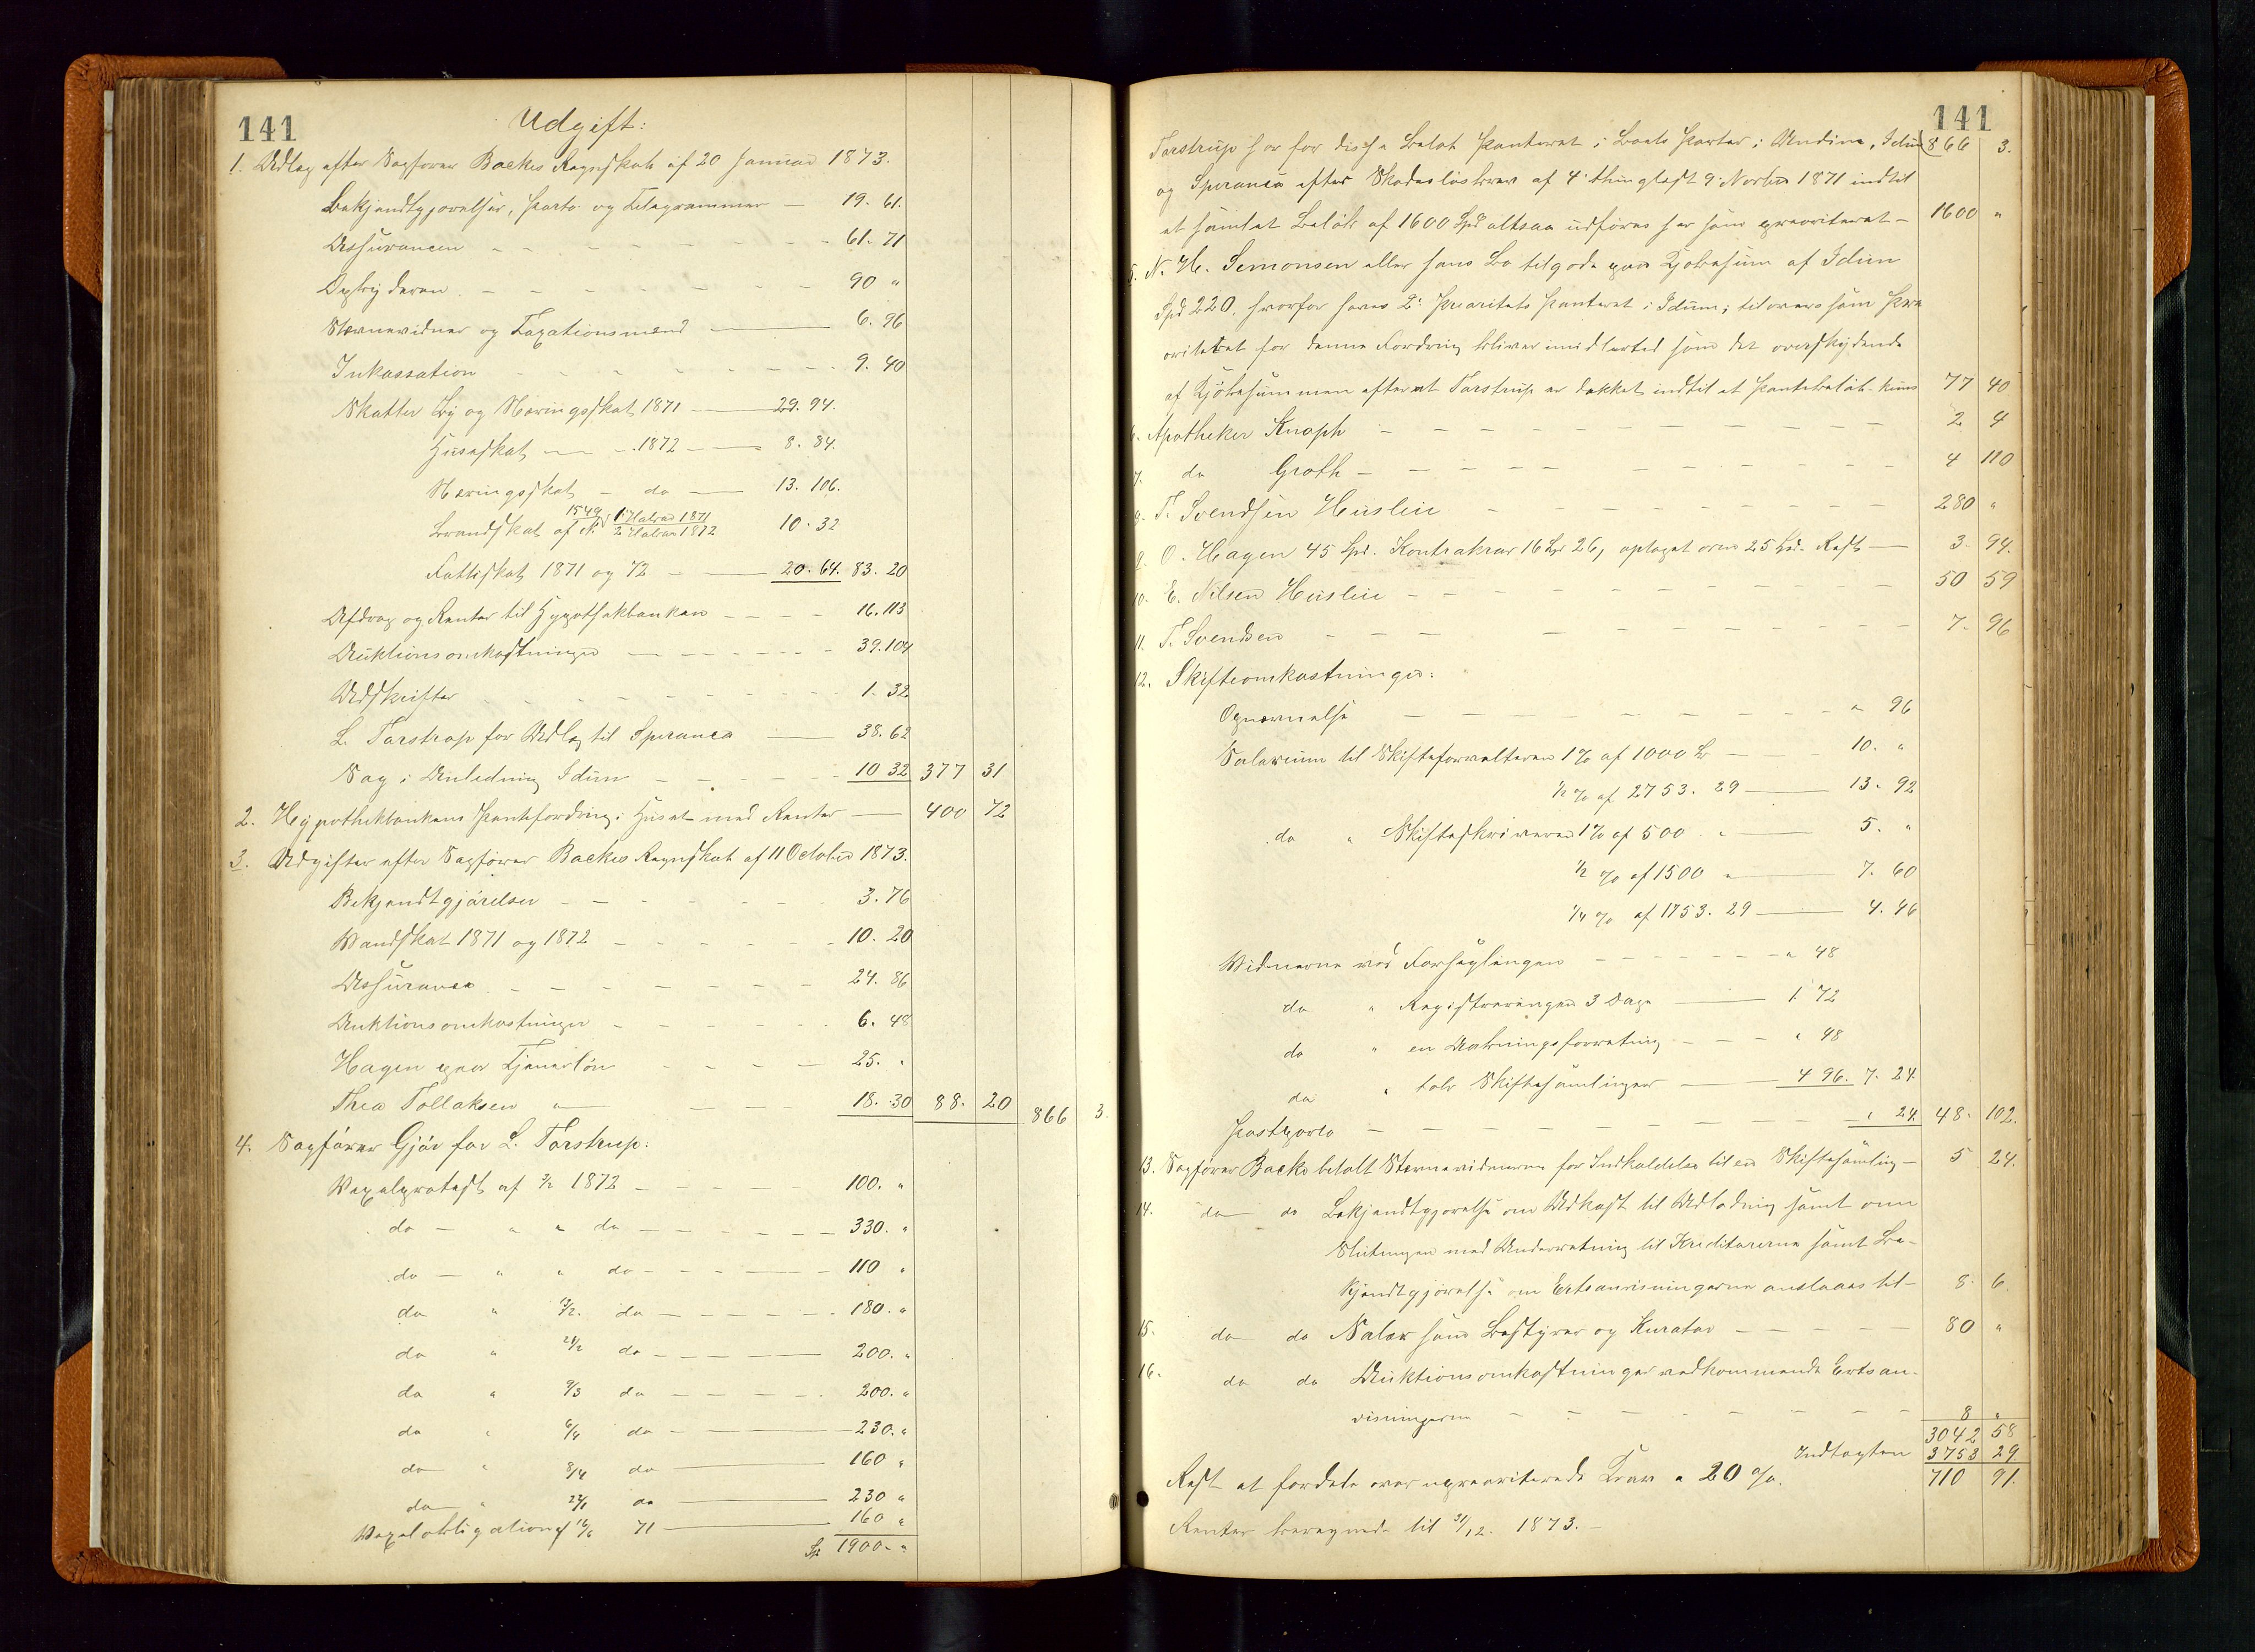 141
Udgift:
1. Udlæg efter Sagfører Backes Regnskab af 20 Januar 1873.
Bekjendtgjørelser, Porto og Telegrammer — 19. 61.
Assurancen — 61. 71
Opbyderen — 90 "
Stævnevidner og Taxationsmænd — 6. 96
Inkassation — 9. 40
Skatter By og Næringsskat 1871 — 29. 94.
Husskat — 1872 — 8. 84.
Næringsskat — do — 13. 106.
Brandskat af No 1549 1 Halvaar 1871 2 Halvaar 1872 10. 32
Fattiskat 1871 og 72 — 20. 64. 83. 20
Afdrag og Renter til Hypothekbanken — 16. 113
Auktionsomkostninger — 39. 104
Udskrifter — 1. 32
L. Tarstrup for Udlæg til Speranca — 38. 62
Sag i Anledning Idun — 10 32 377 31
2. Hypothekbankens Pantefordring i Huset med Renter — 400 72
3. Udgifter efter Sagfører Backes Regnskab af 11 October 1873.
Bekjendtgjørelser — 3. 76
Vandskat 1871 og 1872 — 10. 20
Assurance — 24. 86
Auktionsomkostninger — 6. 48
Hagen paa Tjenerløn — 25. "
Thea Tollaksen " — 18. 30 88. 20 866 3.
4. Sagfører Gjør for L. Tarstrup:
Vexelprotest af 2/2 1872 — 100. "
do — " " do — 330. "
do — " " do — 110 "
do " 13/2. do — 180. "
do " 21/2 do — 200. "
do " 9/3 do — 200. "
do " 6/4 do — 230. "
do " 8/4 do — 160 "
do " do — 230 "
Vexelobligation af 16/6 71 — 160 "
Spd 1900. "
141
Tarstrup har for disse Beløb Panteret i Boets Parter i Undine, Idun 866 3.
og Speranca efter Skadesløsbrev af 4' thinglæst 9' Novbr 1871 indtil
et samlet Beløb af 1600 Spd altsaa udføres her som prioriteret — 1600 "
5. N. H. Semonsen eller hans Bo tilgode paa Kjøbesum af Idun
Spd 220, hvorfor haves 2' Prioritets Panteret i Idun; tilovers som Pri
oriteret for denne Fordring bliver imidlertid som det overskydende
af Kjøbesummen efterat Tarstrup er dækket indtil et Pantebeløb kuns 77 40
6. Apotheker Knoph — 2 4
7. do Groth — 4 110
8. T. Svendsen Husleie — 280 "
9. O. Hagen 45 Spd. 16 26, optaget 25 Spd. Rest — 3. 94.
10. E. Nilsen Husleie — 50 59
11. T. Svendsen — 7. 96
12. Skifteomkostninger:
Opnævnelse — " 96
Salarium til Skifteforvalteren 1% af 1000 — 10. "
1/2 % af 2753. 29 — 13. 92
do " Skifteskriveren 1% af 500 " — 5. "
1/2 % af 1500 " — 7. 60
1/4 % af 1753. 29 — 4. 46
Vidnerne ved Forseglingen — " 48
do " Registreringen 3 Dage — 1 72
do " en Aabningsforretning — " 48
do " tolv Skiftesamlinger — 4 96. 7. 24
Postporto — " 24. 48. 102.
13. Sagfører Backe betalt Stævnevidnerne for Indkaldelse til en Skiftesamling — 5 24.
14. do do Bekjendtgjørelse om Udkast til Udlodning samt om
Slutningen med Underretning til Kreditorerne samt Be-
kjendtgjørelse om Ertsanvisningerne anslaaes til — 8. 6
15. do do Salær som Bestyrer og Kurator — 80 "
16. do do Auktionsomkostninger vedkommende Ertsan-
visningerne — 8 "
3042 58
Indtægten 3753 29
Rest at fordele over uprioriterede Krav a 20 %. 710 91.
Renter beregnede til 31/12. 1873. —